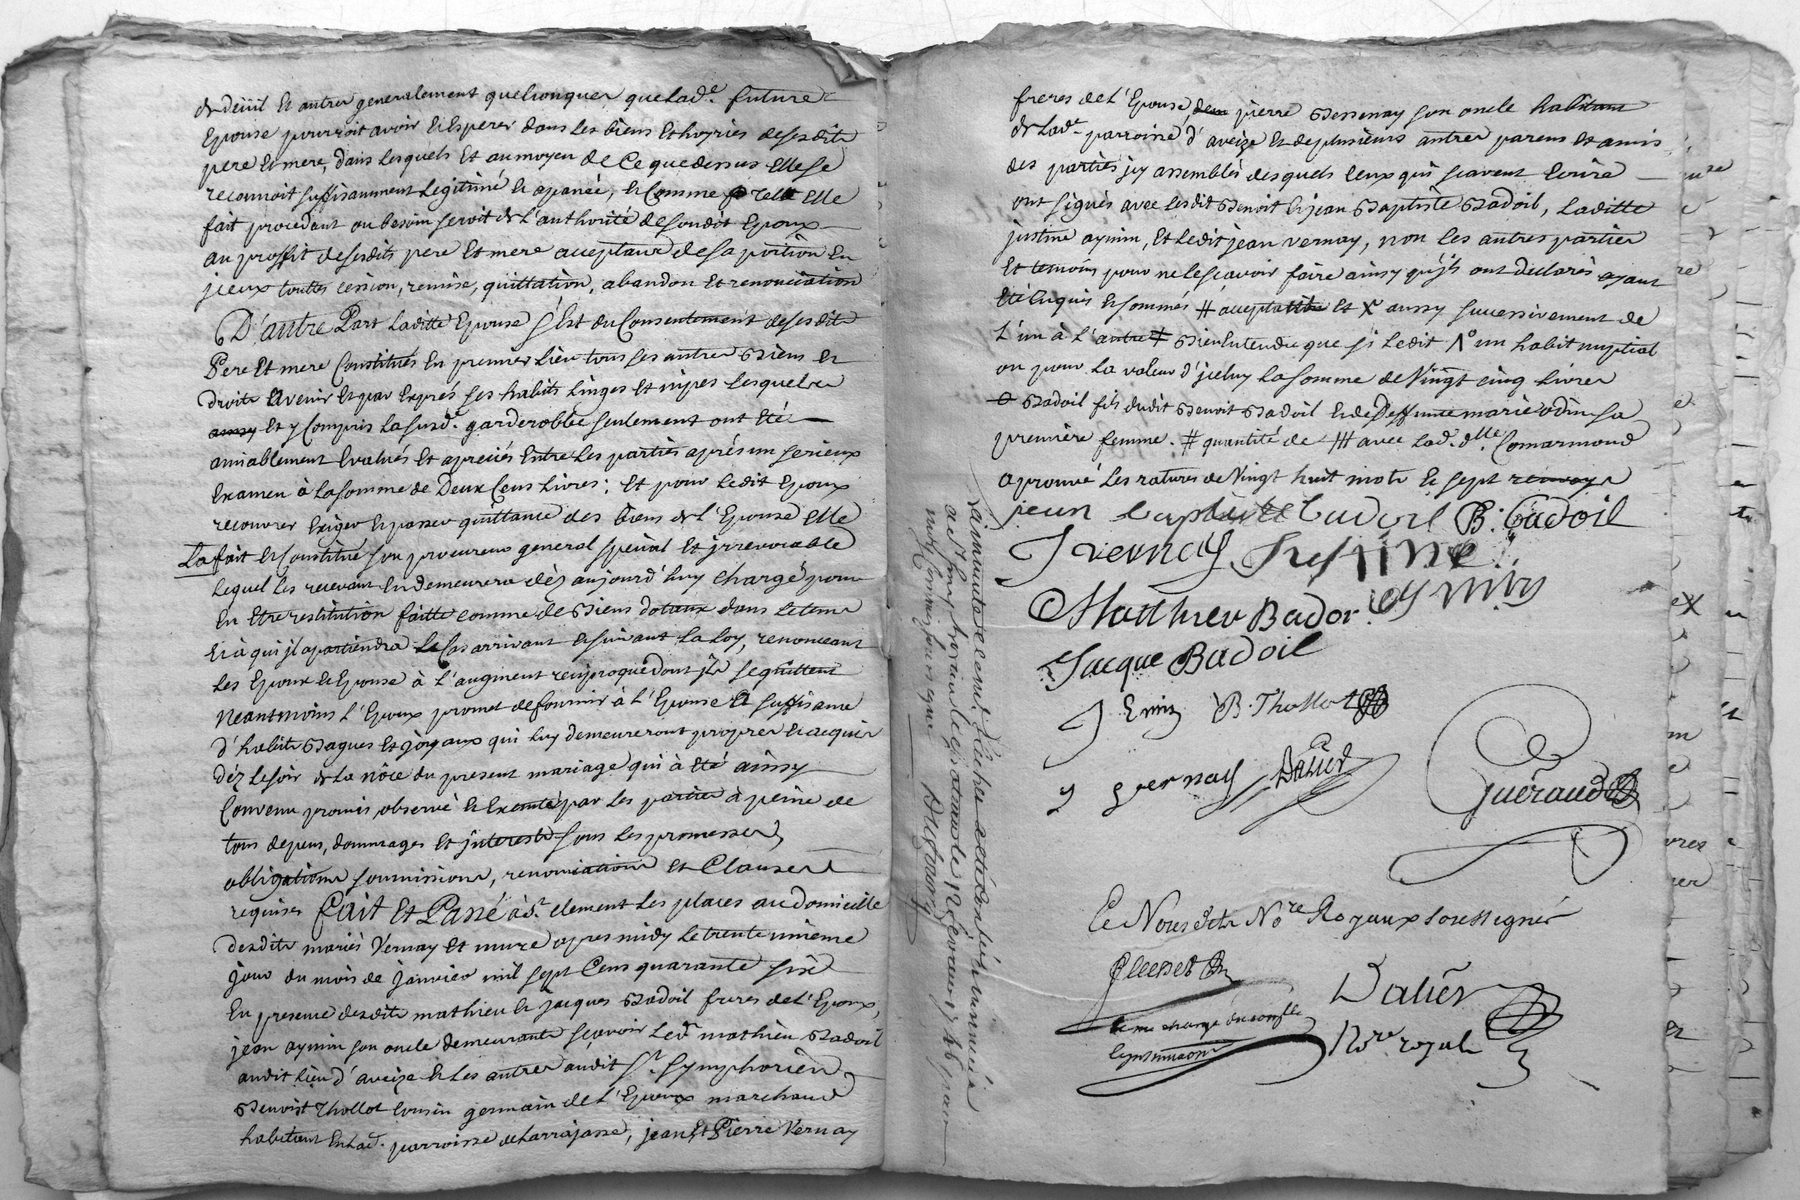 de deüil et autres generalement quelconques que lad.e future
Epouse pourroit avoir et Esperer dans les biens et hoyries desesdits
pere et mere, dans lesquels et au moyen de Ce que dessus Elle se
reconnoit suffisamment Legitimé et apanée, et Comme telle Elle
fait procedant ou besoin seroit de L'authorité desondit Epoux
au proffit desesdits pere et mere acceptans desa portion En
jceux touttes cession, remise, quittation, abandon et renonciation
D'autre Part laditte Epouse s'Est du Consentement desesdits
Pere et mere Constitués En premier lieu tous ses autres Biens et
droits avenir et par Exprés ses habits linges et nipes lesquels
aussy et y Compris la susd.e garderobbe seulement ont Eté
amiablement Evalués et apreciés Entre les parties aprés un serieux
Examen à la somme de Deux Cens Livres; et pour ledit Epoux
recouvrer Exiger et passer quittance des biens de l'Epouse Elle
La fait et Constitué son procureur general special et jrrevocable
lequel les recevant En demeurera dèz aujourd'huy chargé pour
En Etre restitution faitte comme de Biens dotaux dans le tems
Et à qui jl apartiendra le Cas arrivant et suivant La Loy, renonceant
les Epoux et Epouse à l'augment reciproque dont jls se quittent
Neantmoins l'Epoux promet de fournir à l'Epouse suffisance
d'habits Bagues et joyaux qui luy demeureront propres et acquis
déz le soir de la nôce du present mariage qui à Eté ainsy
Convenu promis, observé et Executé par les parties à peine de
tous depens, dommages et jnterests sous les promesses,
obligations soumissions, renonciations et Clauses
requises Fait et Passé à S.t clement les places au domicille
desdits mariés Vernay et mure apres midy le trente unieme
jour du mois de janvier mil sept Cens quarante six
En presence desdits mathieu et jacques Badoil freres de l'Epoux,
jean aymin son oncle demeurants scavoir led.t mathieu Badoil
audit lieu d'aveize et les autres audit S.t Symphorien
Benoist Thollot cousin germain de l'Epoux marchand
habitant En lad.e parroisse de larrajasse, jean Et Pierre Vernay
freres de l'Epouse, pierre Bessenay son oncle habitant
de lad.e parroisse d'aveize et de plusieurs autres parens et amis
des parties jcy assemblés desquels ceux qui scavent Ecrire
ont signés avec lesdit Benoit et jean Baptiste Badoil, laditte
justine aymin, Et ledit jean vernay, non les autres parties
Et temoins pour ne le scavoir faire ainsy qu'jls ont déclarés ayant
Eté Enquis et sommés # acceptante et X aussy successivement de
l'un à l'autre Bien Entendu que si ledit un habit nuptial
ou pour la valeur d'jceluy la somme de Vingt cinq livres
Badoil fils dudit Benoit Badoil et de Deffunte marie odin sa
premiére femme. # quantité de avec lad.e d.lle Comarmond
aprouvé les ratures de Vingt huit mots et sept renvoys
jean baptiste badoil B: badoil
J vernay Justine
Matthieu Badoil aymin
Jacque Badoil
J Emin B. Thollot
p vernay Dalier
Gueraud
Et Nous dits No.re Royaux soussignés
Dalier
No.re royal